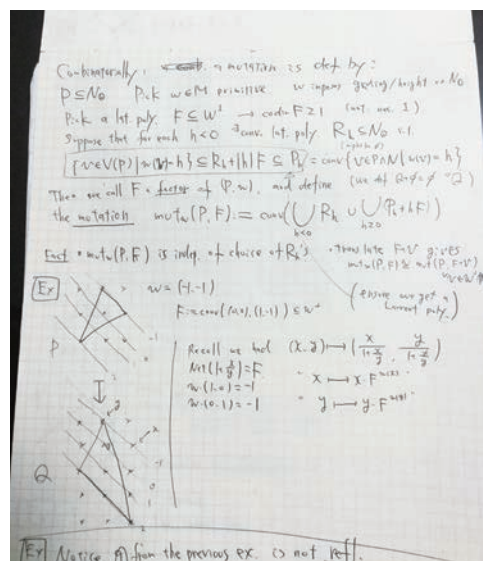 Combinatorially, a mutation is def by:
P ⊆ N_Q Pick w ∈ M primitive. w imposes grading/height on N_Q
Pick a lat. poly. F ⊆ w^⊥ → codim F ≥ 1 (not. nec. 1)
Suppose that for each h<0 ∃ conv. lat. poly. R_h ⊆ N_Q s.t.
{v∈V(P) | w(v)=h} ⊆ R_h+|h|F ⊆ P_h = conv{v∈P∩N | w(v)=h}
Then we call F a factor of (P,w), and define
the mutation mut_w(P,F) := conv(⋃_{h<0} R_h ∪ ⋃_{h≥0} (P_h+hF))
Fact • mut_w(P,F) is indep. of choice of R_h's. • translate F+v gives
(ensure we get a
Laurent poly.)
Ex w = (-1,-1)
F := conv((0,0),(1,-1)) ⊆ w^⊥
P
-1
Recall we had (x,y) ↦ (x/(1+x/y), y/(1+x/y))
Newt(1+x/y) = F
w·(1,0) = -1 " x ↦ x·F^{w(x)} "
w·(0,1) = -1 " y ↦ y·F^{w(y)} "
y
x
Q
-1
0
1
2
Ex Notice Q from the previous ex. is not refl.